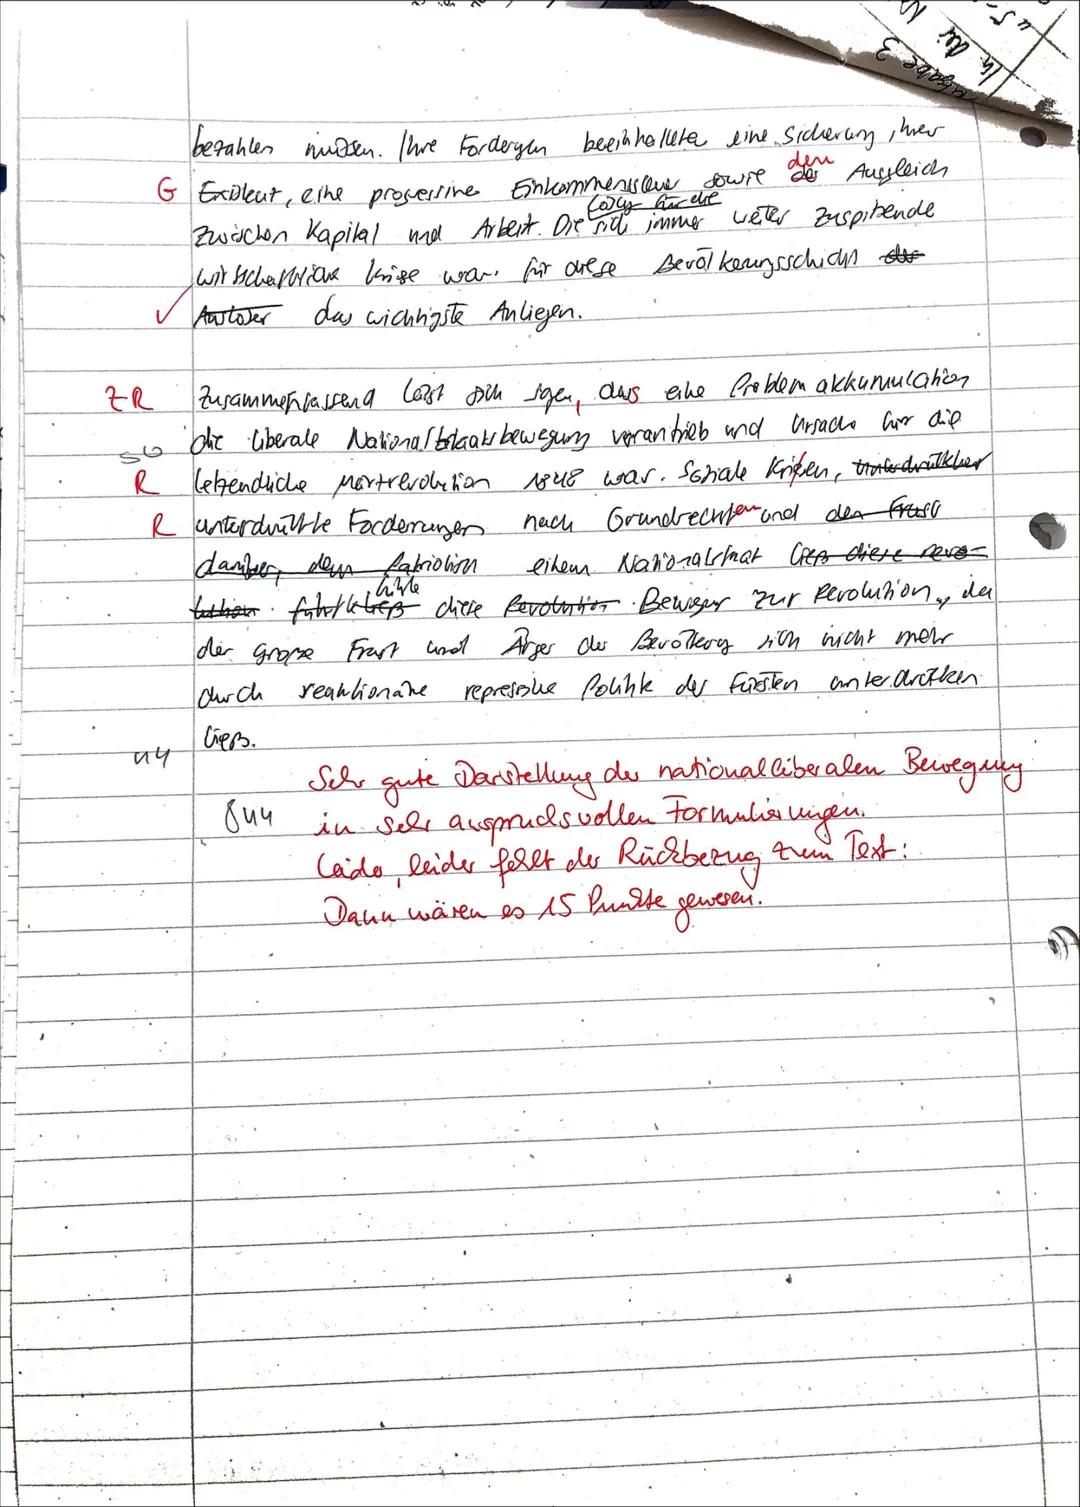 Aufgabe 3
In der
bezahlen müssen. Ihre Fordergen beeinhaltete eine Sicherung ihrer
G Existent, eine progressive Einkommenssteuer sowie der den Ausgleich
zwischen Kapital und Arbeit. Die sich immer weiter zuspitzende
wirtschaftliche Krise war für diese Bevölkerungsschicht der
✓ Auslöser das wichtigste Anliegen.
ZR Zusammenfassend lässt sich sagen, dass eine Problemakkumulation
56 die liberale Nationalstaatsbewegung vorantrieb und Ursache für die
R letzendliche Märzrevolution 1848 war. Soziale Krisen, unterdrückter
R unterdrückte Forderungen nach Grundrechten und den Frust
darüber, dem Patriotism einem Nationalstaat liess diese revo-
lution führte liess führte diese Revolution Bewegung zur Revolution, da
der grosse Frust und Ärger der Bevölkerg sich nicht mehr
durch reaktionäre repressive Politik der Fürsten unterdrücken
liess.
44
844
Sehr gute Darstellung der nationalliberalen Bewegung
in sehr anspruchsvollen Formulierungen.
Leider, leider fehlt der Rückbezug zum Text:
Dann wären es 15 Punkte gewesen.